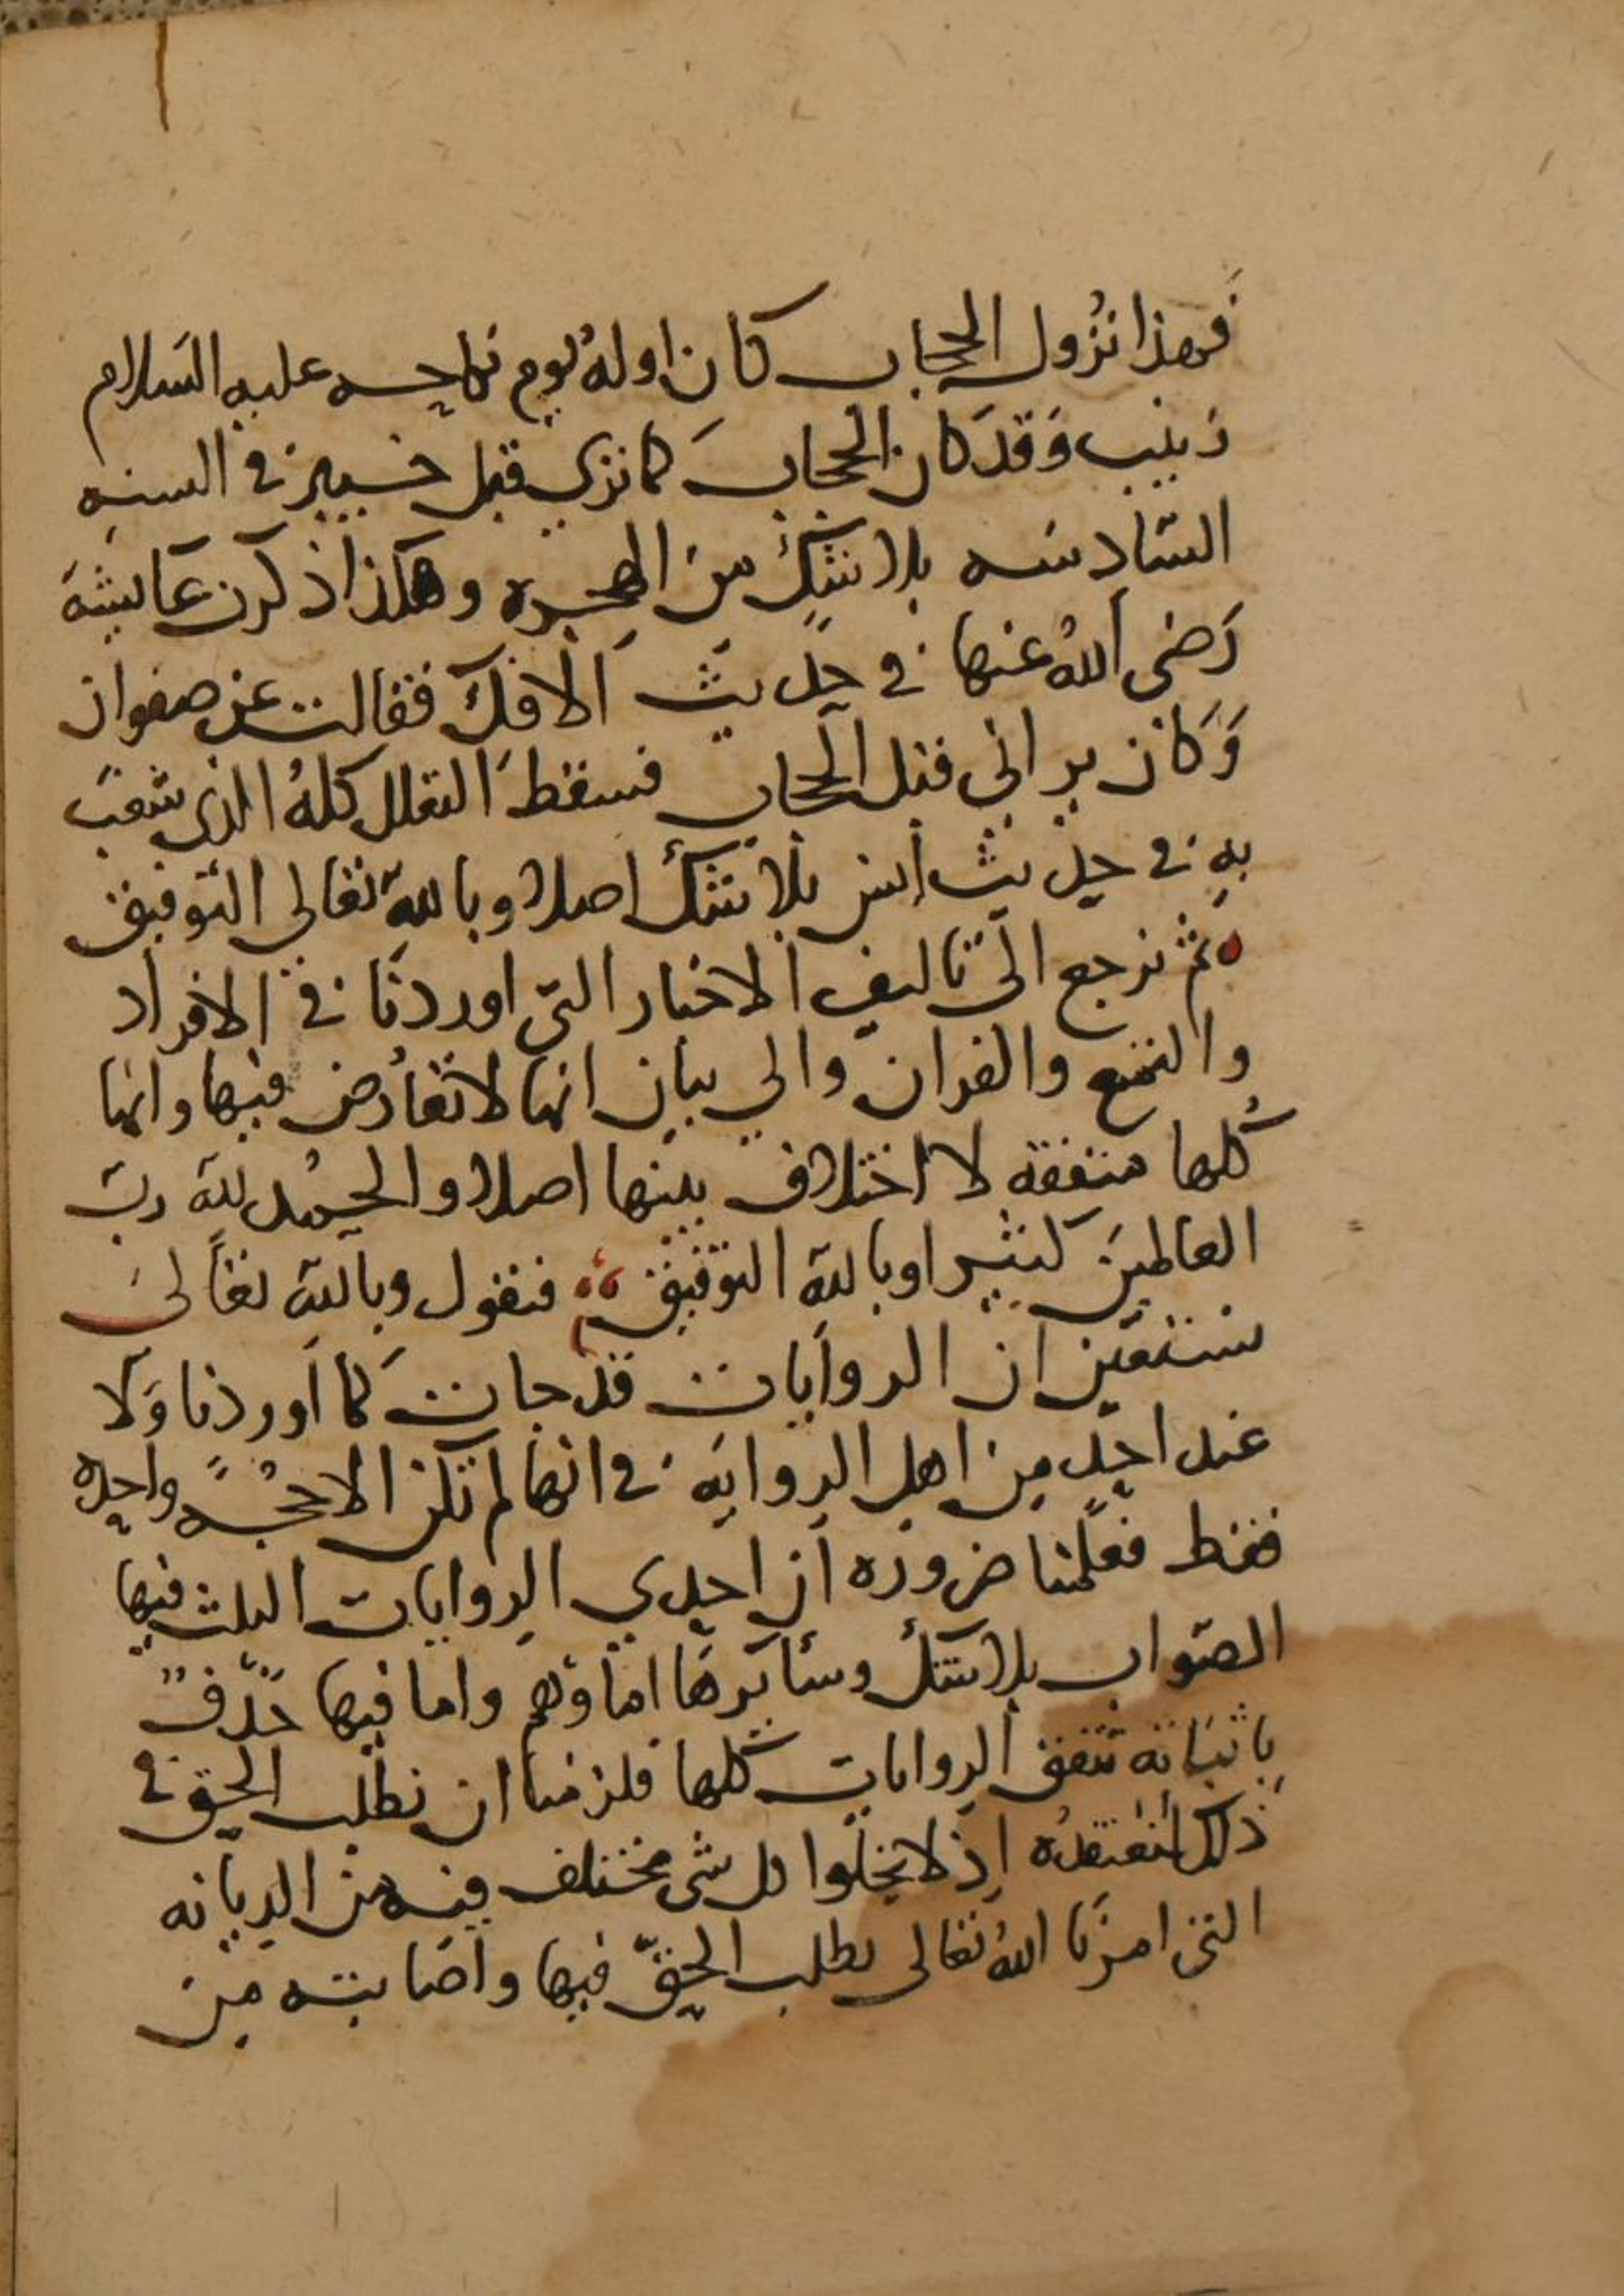 فهذا نزول الحجاب كان اوله يوم نكاحه عليه السلام
زينب وقد كان الحجاب كما نري قبل خيبر في السنه
السادسه بلا شك من الهجره وهكذا ذكرت عايشه
رضي الله عنها في حديث الافك فقالت عن صفوان
وكان يراني قبل الحجاب فسقط التعلل كله الذي شغب
به في حديث انس بلا شك اصلا وبالله تعالي التوفيق
ثم نرجع الي تاليف الاخبار التي اوردنا في الافراد
والتمتع والقران والي بيان انها لا تعارض فيها وانها
كلها متفقه لا اختلاف بينها اصلا والحمد لله رب
العالمين كثيرا وبالله التوفيق فنقول وبالله تعالى
نستعين ان الروايات قد جات كما اوردنا ولا
عند احد من اهل الروايه في انها لم تكن الا حجه واحده
فقط فعلمنا ضروره ان احدي الروايات الثلث فيها
الصواب بلا شك وسايرها اما وهم واما فيها حذف
باثباته تتفق الروايات كلها فلزمنا ان نطلب الحق في
ذلك لنعتقده اذ لا يخلوا كل شي مختلف فيه من الديانه
التي امرنا الله تعالى بطلب الحق فيها واصابته من